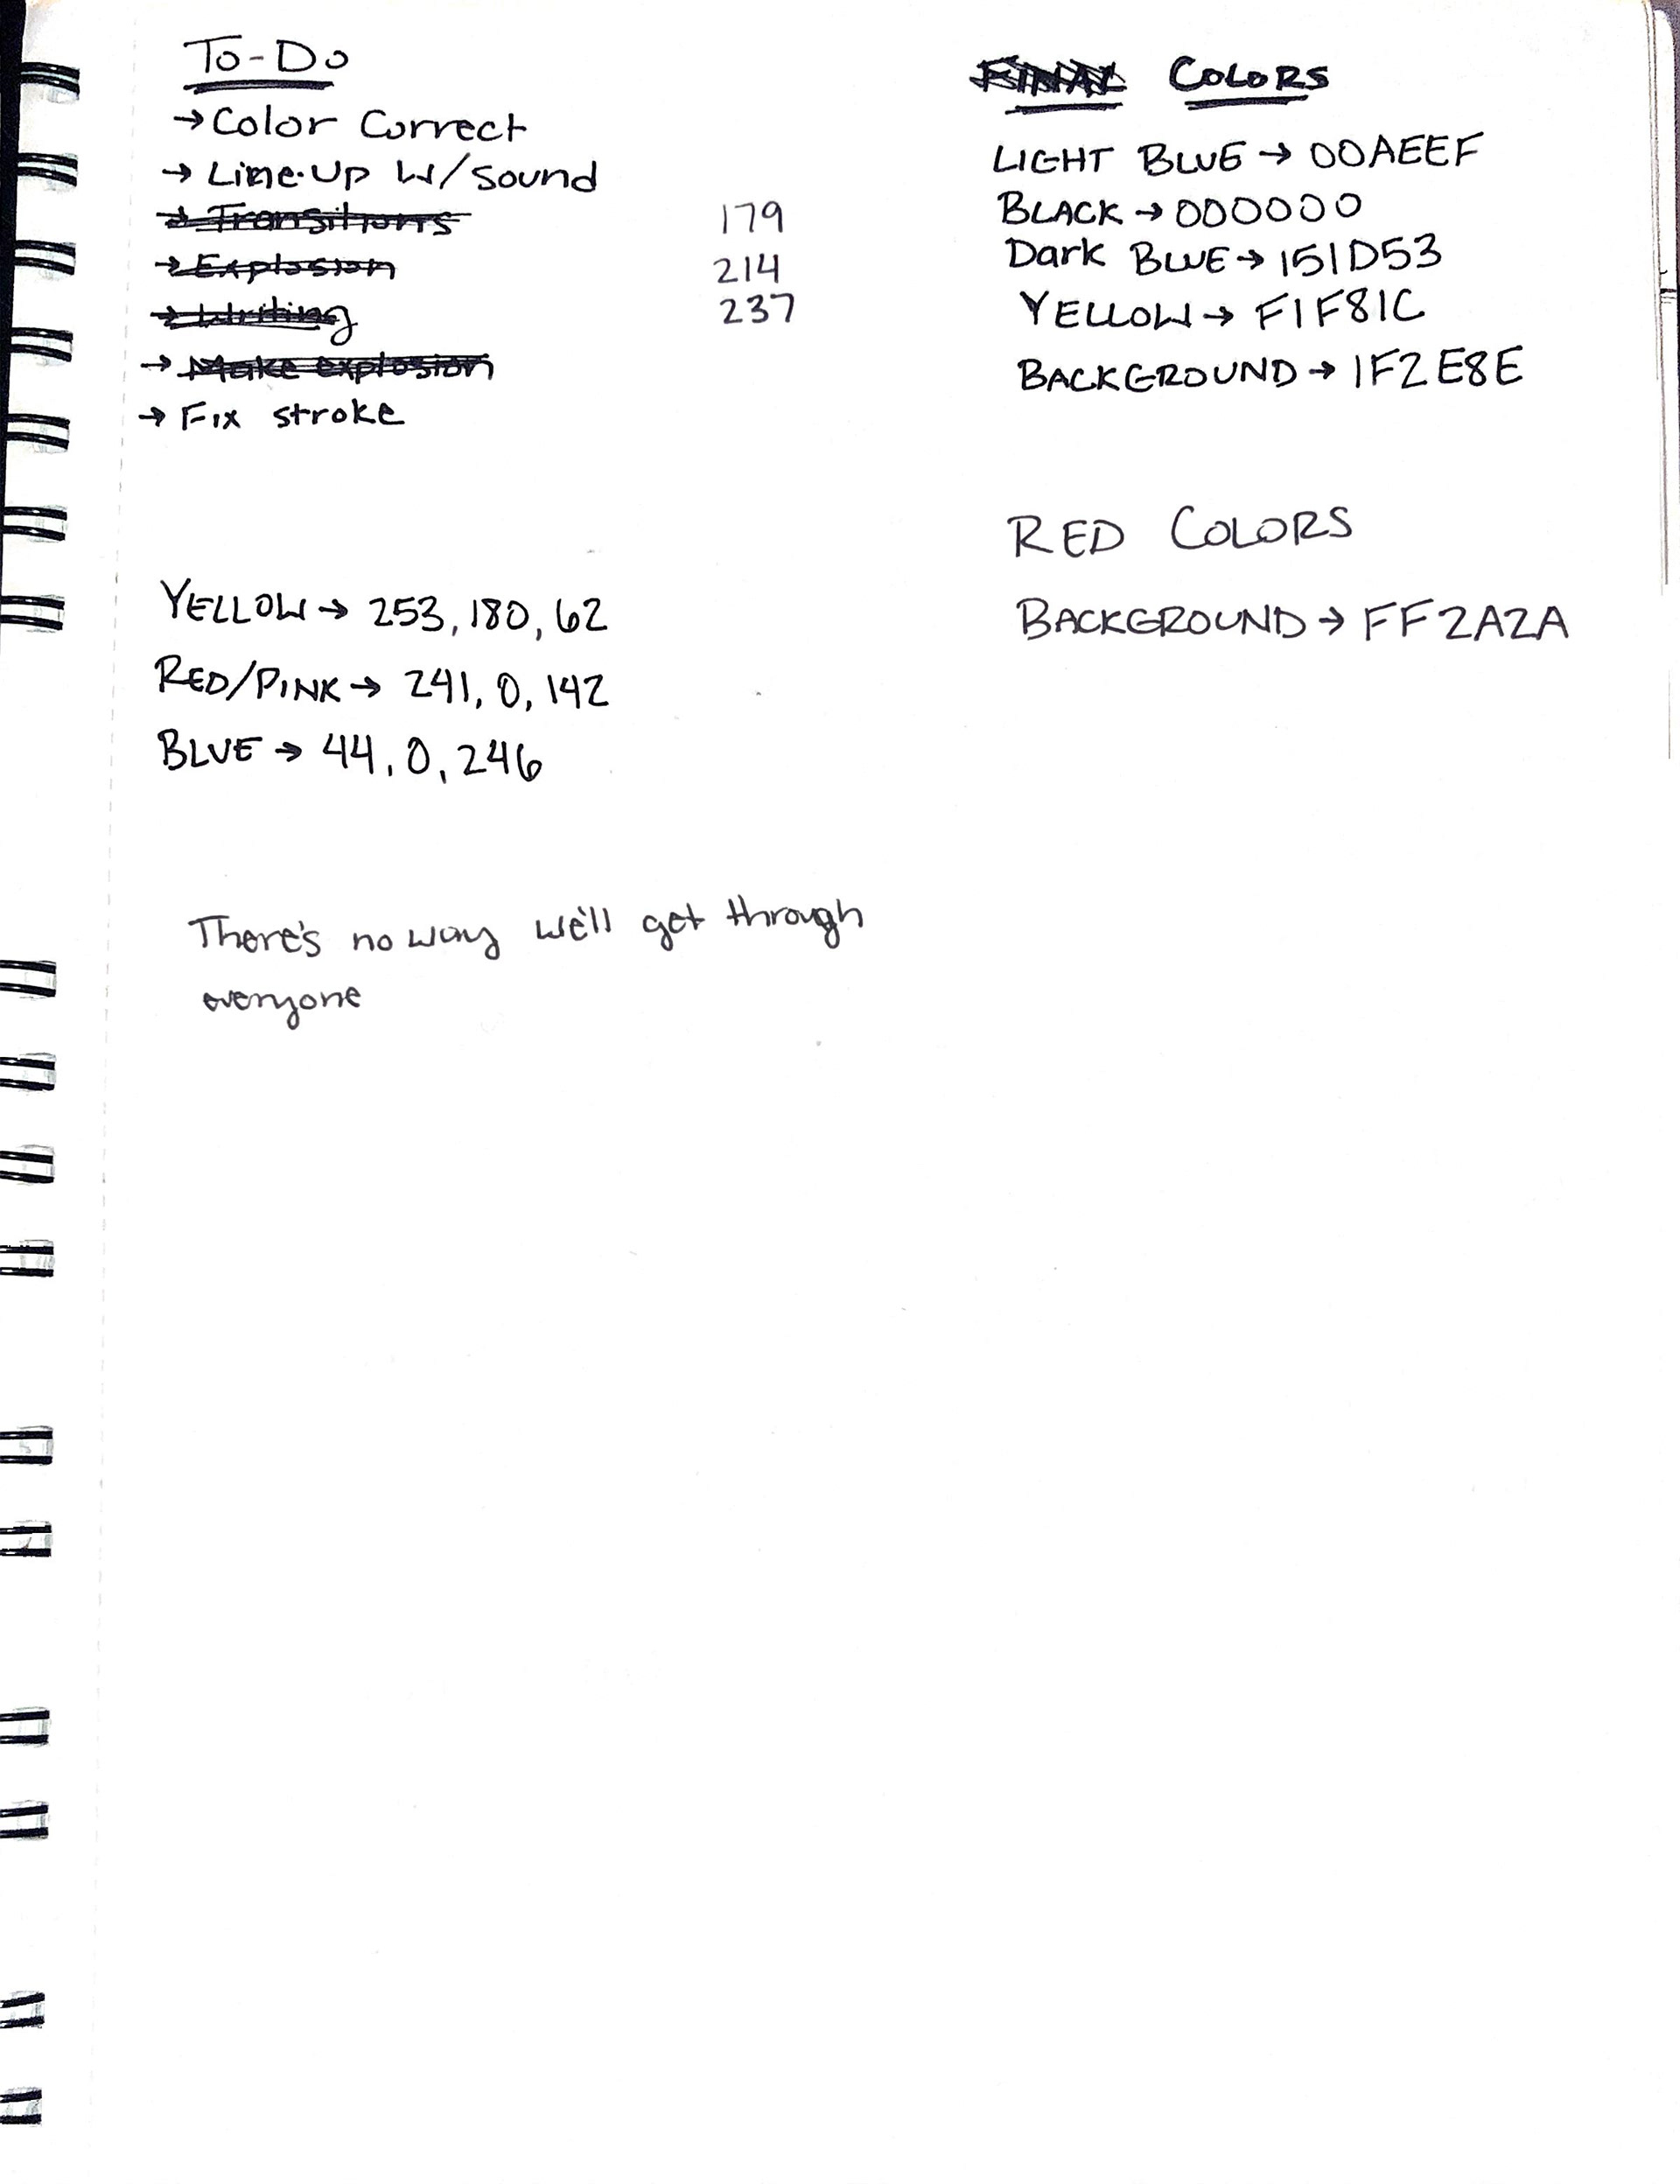 To-Do
→ Color Correct
→ Line-Up W/ Sound
→ Transitions
→ Explosion
→ Writing
→ Make explosion
→ Fix stroke
179
214
237
FINAL COLORS
LIGHT BLUE → 00AEEF
BLACK → 000000
Dark BLUE → 151D53
YELLOW → F1F81C
BACKGROUND → 1F2E8E
RED COLORS
BACKGROUND → FF2A2A
YELLOW → 253, 180, 62
RED/PINK → 241, 0, 142
BLUE → 44, 0, 246
There's no way we'll get through
everyone